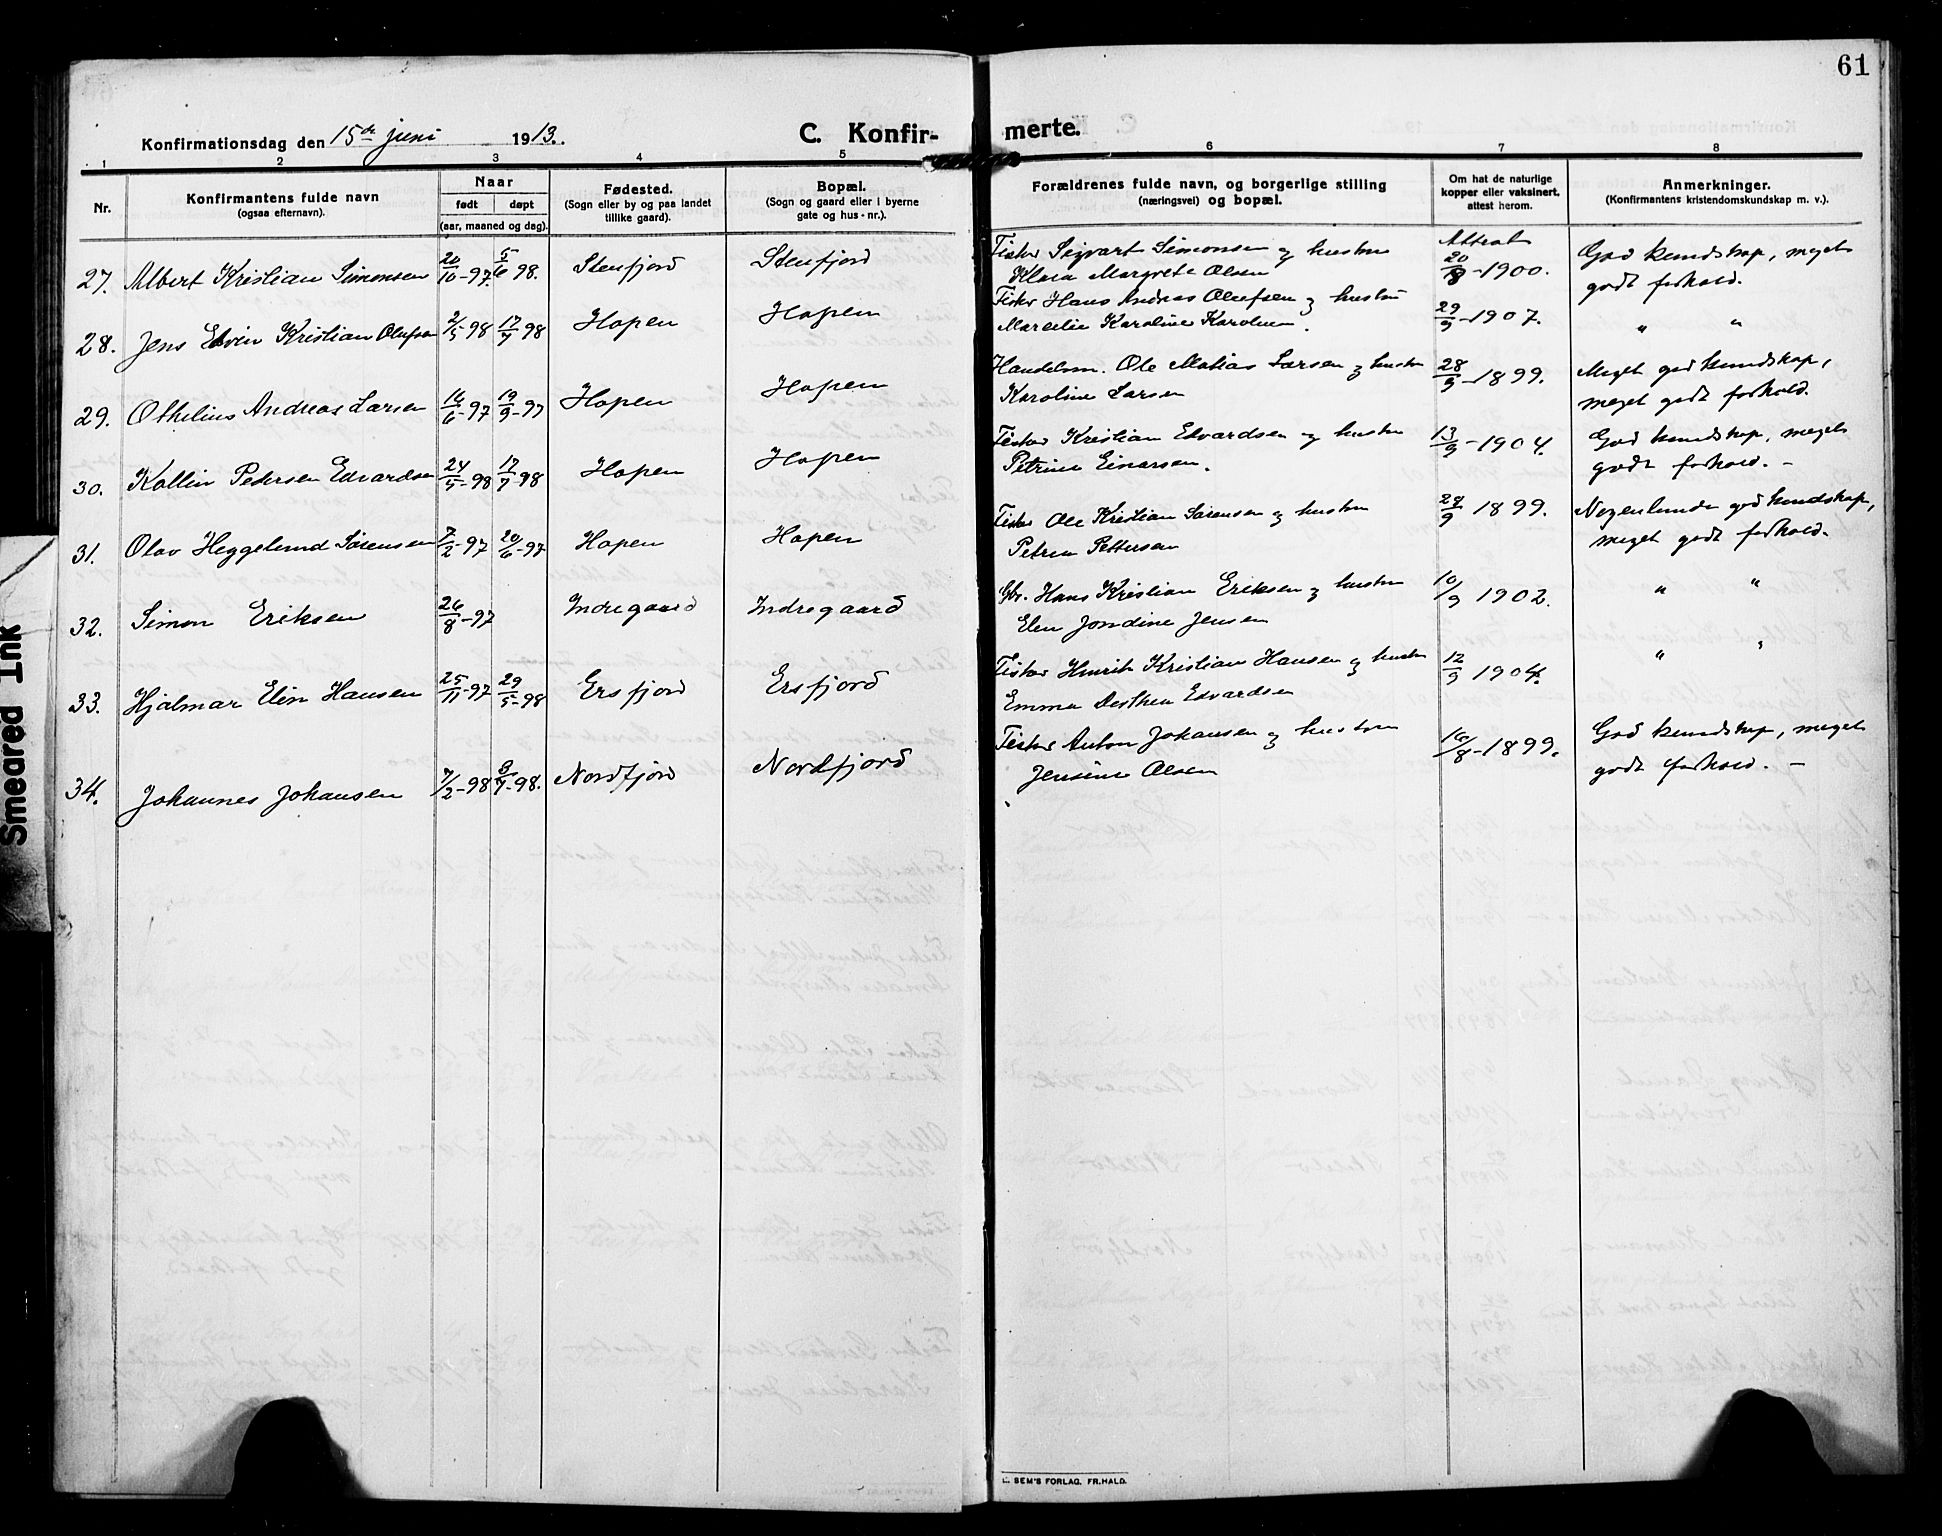 61
Konfirmationsdag den 15de juni 1913.
C. Konfir- merte.
1 2 3 4 5 6 7 8
Nr.
Konfirmantens fulde navn
(ogsaa efternavn).
Naar
født døpt
(aar, maaned og dag).
Fødested.
(Sogn eller by og paa landet
tillike gaard).
Bopæl.
(Sogn og gaard eller i byerne
gate og hus-nr.).
Forældrenes fulde navn, og borgerlige stilling
(næringsvei) og bopæl.
Om hat de naturlige
kopper eller vaksinert,
attest herom.
Anmerkninger.
(Konfirmantens kristendomskundskap m. v.).
27. Albert Kristian Simonsen 20/10-97. 5/6 98. Stenfjord Stenfjord
Fisker Sigvart Simonsen og hustru
Klara Margrete Olsen
Attest
20/8-1900.
God kundskap, meget
godt forhold.
28. Jens Edvin Kristian Olufsen 2/5-98 17/7 98 Hopen Hopen
Fisker Hans Andreas Olufsen og hustru
Marelie Karoline Karolsen.
29/9-1907.
" "
29. Othelius Andreas Larsen 16/6-97 19/9-97 Hopen Hopen
Handelsm. Ole Matias Larsen og hustru
Karoline Larsen
28/9-1899.
Meget god kundskap,
meget godt forhold.
30. Kollin Pedersen Edvardsen 24/5-98 17/7-98 Hopen Hopen
Fisker Kristian Edvardsen og hustru
Petrine Einarsen.
13/9-1904.
God kundskap, meget
godt forhold. -
31. Olav Heggelund Sørensen 7/2-97 20/6-97 Hopen Hopen
Fisker Ole Kristian Sørensen og hustru
Petrea Pettersen
28/9 1899.
Nogenlunde god kundskap,
meget godt forhold.
32. Simon Eriksen 26/8-97 Indregaard Indregaard
Gbr. Hans Kristian Eriksen og hustru
Elen Jondine Jensen
10/9 1902.
" "
33. Hjalmar Elin Hansen 25/11-97 29/5-98 Ersfjord Ersfjord
Fisker Henrik Kristian Hansen og hustru
Emma Dorthea Edvardsen
12/9 1904.
" "
34. Johannes Johansen 7/2-98 3/7-98. Nordfjord Nordfjord
Fisker Anton Johansen og hustru
Jensine Olsen
16/8-1899.
God kundskap, meget
godt forhold. -
SEM'S FORLAG. FR.HALD.
Smeared Ink